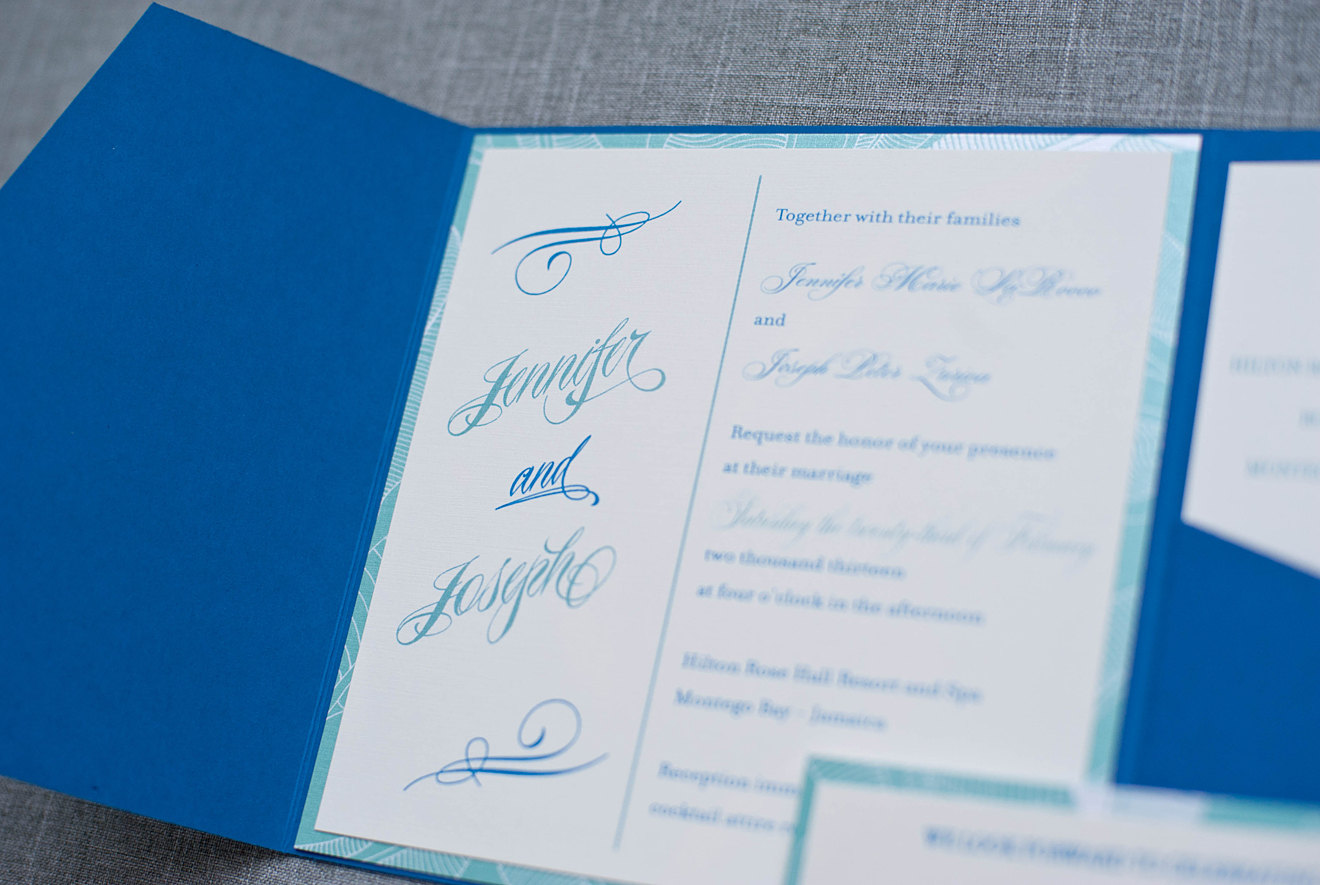 Jennifer
and
Joseph
Together with their families
Jennifer Marie
and
Joseph Peter
Request the honor of your presence
at their marriage
Saturday the twenty-third of February
two thousand thirteen
at four o'clock in the afternoon
Hilton Rose Hall Resort and Spa
Montego Bay - Jamaica
Reception
cocktail attire
HILTON